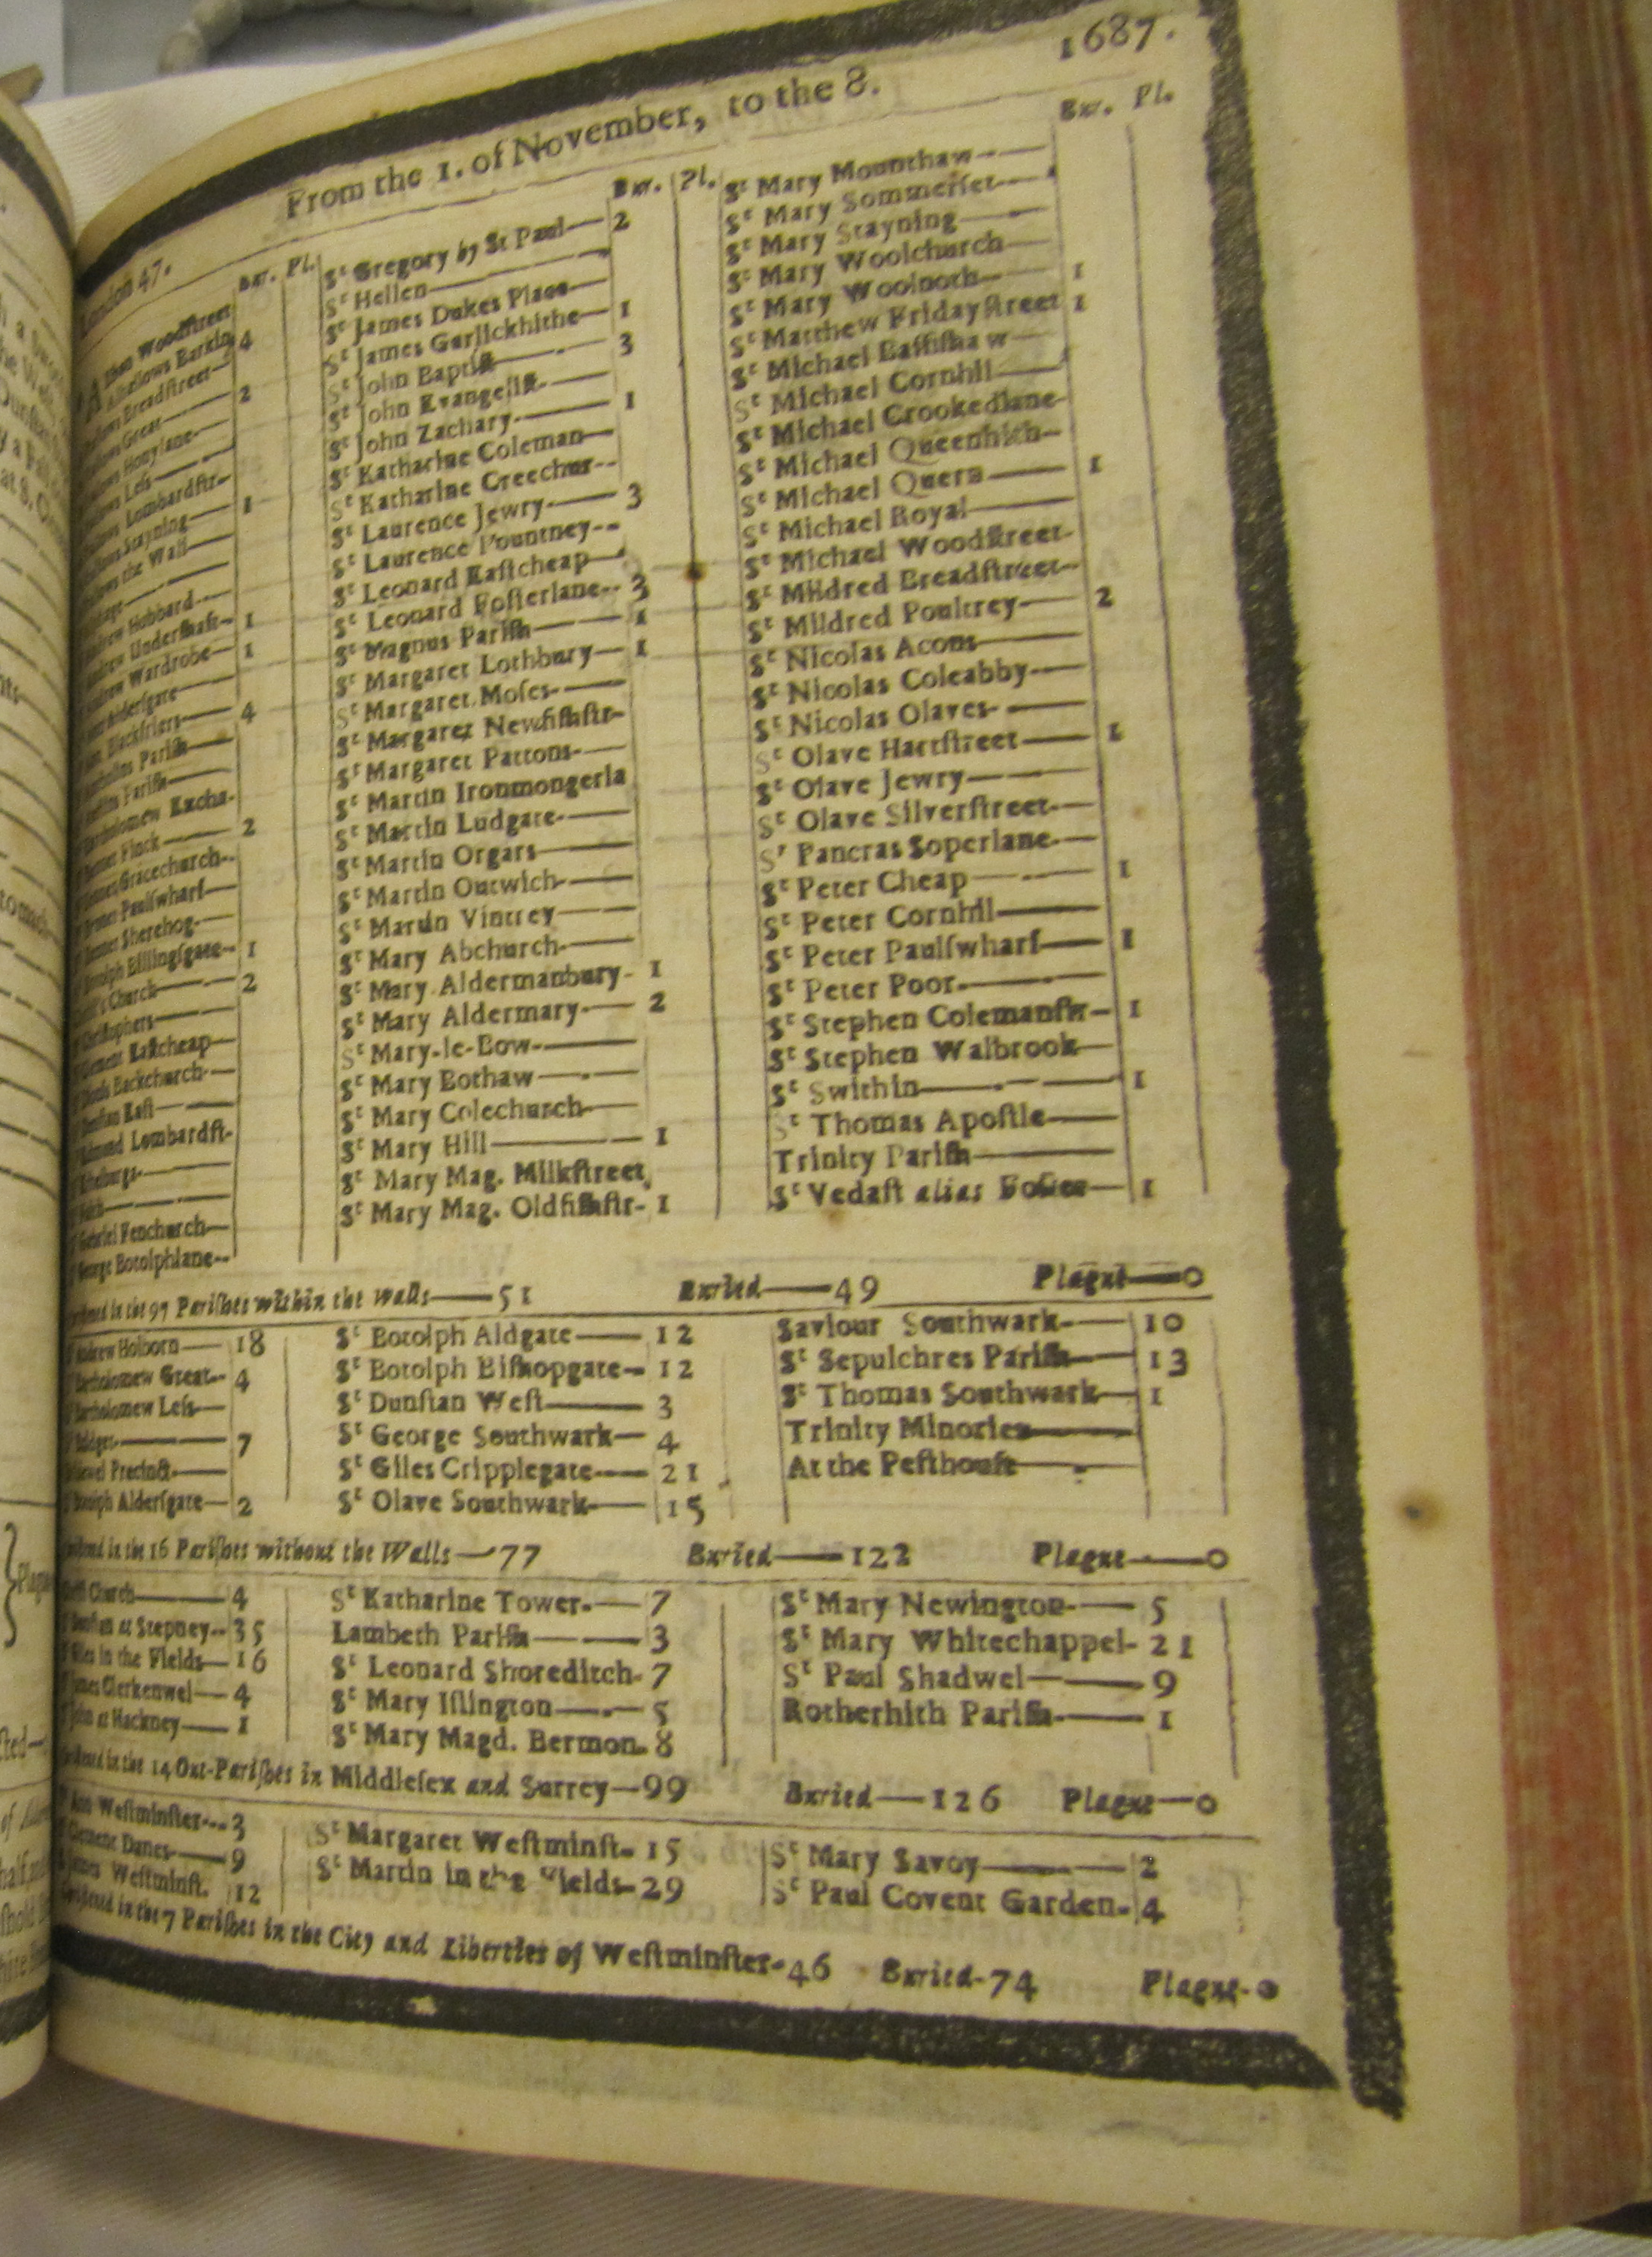 1687.
From the 1. of November, to the 8.
London 47.
Bur. Pl.
Woodstreet
Allhallows Barkin 4
Breadstreet
Great 2
Honylane
Less
Lombardstr
Stayning 1
the Wall
Hubbard
Undershaft 1
Wardrobe 1
Aldersgate
Blackfriers 4
Parish
Parish
Excha-
Finck 2
Gracechurch
Paulswharf
Sherehog
Billingsgate 1
Church 2
Eastcheap
Backchurch
East
Lombardst-
Gabriel Fenchurch
George Botolphlane
Bur. Pl.
St Gregory by St Paul 2
St Hellen
St James Dukes Place
St James Garlickhithe 1
St John Baptist 3
St John Evangelist
St John Zachary 1
St Katharine Coleman
St Katharine Creechur
St Laurence Jewry 3
St Laurence Pountney
St Leonard Eastcheap
St Leonard Fosterlane 3
St Magnus Parish 1
St Margaret Lothbury 1
St Margaret Moses
St Margaret Newfishstr
St Margaret Pattons
St Martin Ironmongerla
St Martin Ludgate
St Martin Orgars
St Martin Outwich
St Martin Vintrey
St Mary Abchurch
St Mary Aldermanbury 1
St Mary Aldermary 2
St Mary-le-Bow
St Mary Bothaw
St Mary Colechurch
St Mary Hill 1
St Mary Mag. Milkstreet
St Mary Mag. Oldfishstr 1
Bur. Pl.
St Mary Mounthaw
St Mary Sommerset
St Mary Stayning
St Mary Woolchurch
St Mary Woolnoth 1
St Matthew Fridaystreet 1
St Michael Bassishaw
St Michael Cornhil
St Michael Crookedlane
St Michael Queenhith
St Michael Quern 1
St Michael Royal
St Michael Woodstreet
St Mildred Breadstreet
St Mildred Poultrey 2
St Nicolas Acons
St Nicolas Coleabby
St Nicolas Olaves
St Olave Hartstreet 1
St Olave Jewry
St Olave Silverstreet
St Pancras Soperlane
St Peter Cheap 1
St Peter Cornhil
St Peter Paulswharf 1
St Peter Poor
St Stephen Colemanstr 1
St Stephen Walbrook
St Swithin 1
St Thomas Apostle
Trinity Parish
St Vedast alias Foster 1
in the 97 Parishes within the walls 51 Buried 49 Plague 0
Andrew Holborn 18
Bartholomew Great 4
Bartholomew Less
Bridget 7
Precinct
Botolph Aldersgate 2
St Botolph Aldgate 12
St Botolph Bishopgate 12
St Dunstan West 3
St George Southwark 4
St Giles Cripplegate 21
St Olave Southwark 15
Saviour Southwark 10
St Sepulchres Parish 13
St Thomas Southwark 1
Trinity Minories
At the Pesthouse
in the 16 Parishes without the Walls 77 Buried 122 Plague 0
Church 4
at Stepney 35
Giles in the Fields 16
James Clerkenwel 4
John at Hackney 1
St Katharine Tower 7
Lambeth Parish 3
St Leonard Shoreditch 7
St Mary Islington 5
St Mary Magd. Bermon. 8
St Mary Newington 5
St Mary Whitechappel 21
St Paul Shadwel 9
Rotherhith Parish 1
in the 14 Out-Parishes in Middlesex and Surrey 99 Buried 126 Plague 0
Ann Westminster 3
Clement Danes 9
James Westminst. 12
St Margaret Westminst 15
St Martin in the Fields 29
St Mary Savoy 2
St Paul Covent Garden 4
in the 7 Parishes in the City and Liberties of Westminster 46 Buried 74 Plague 0